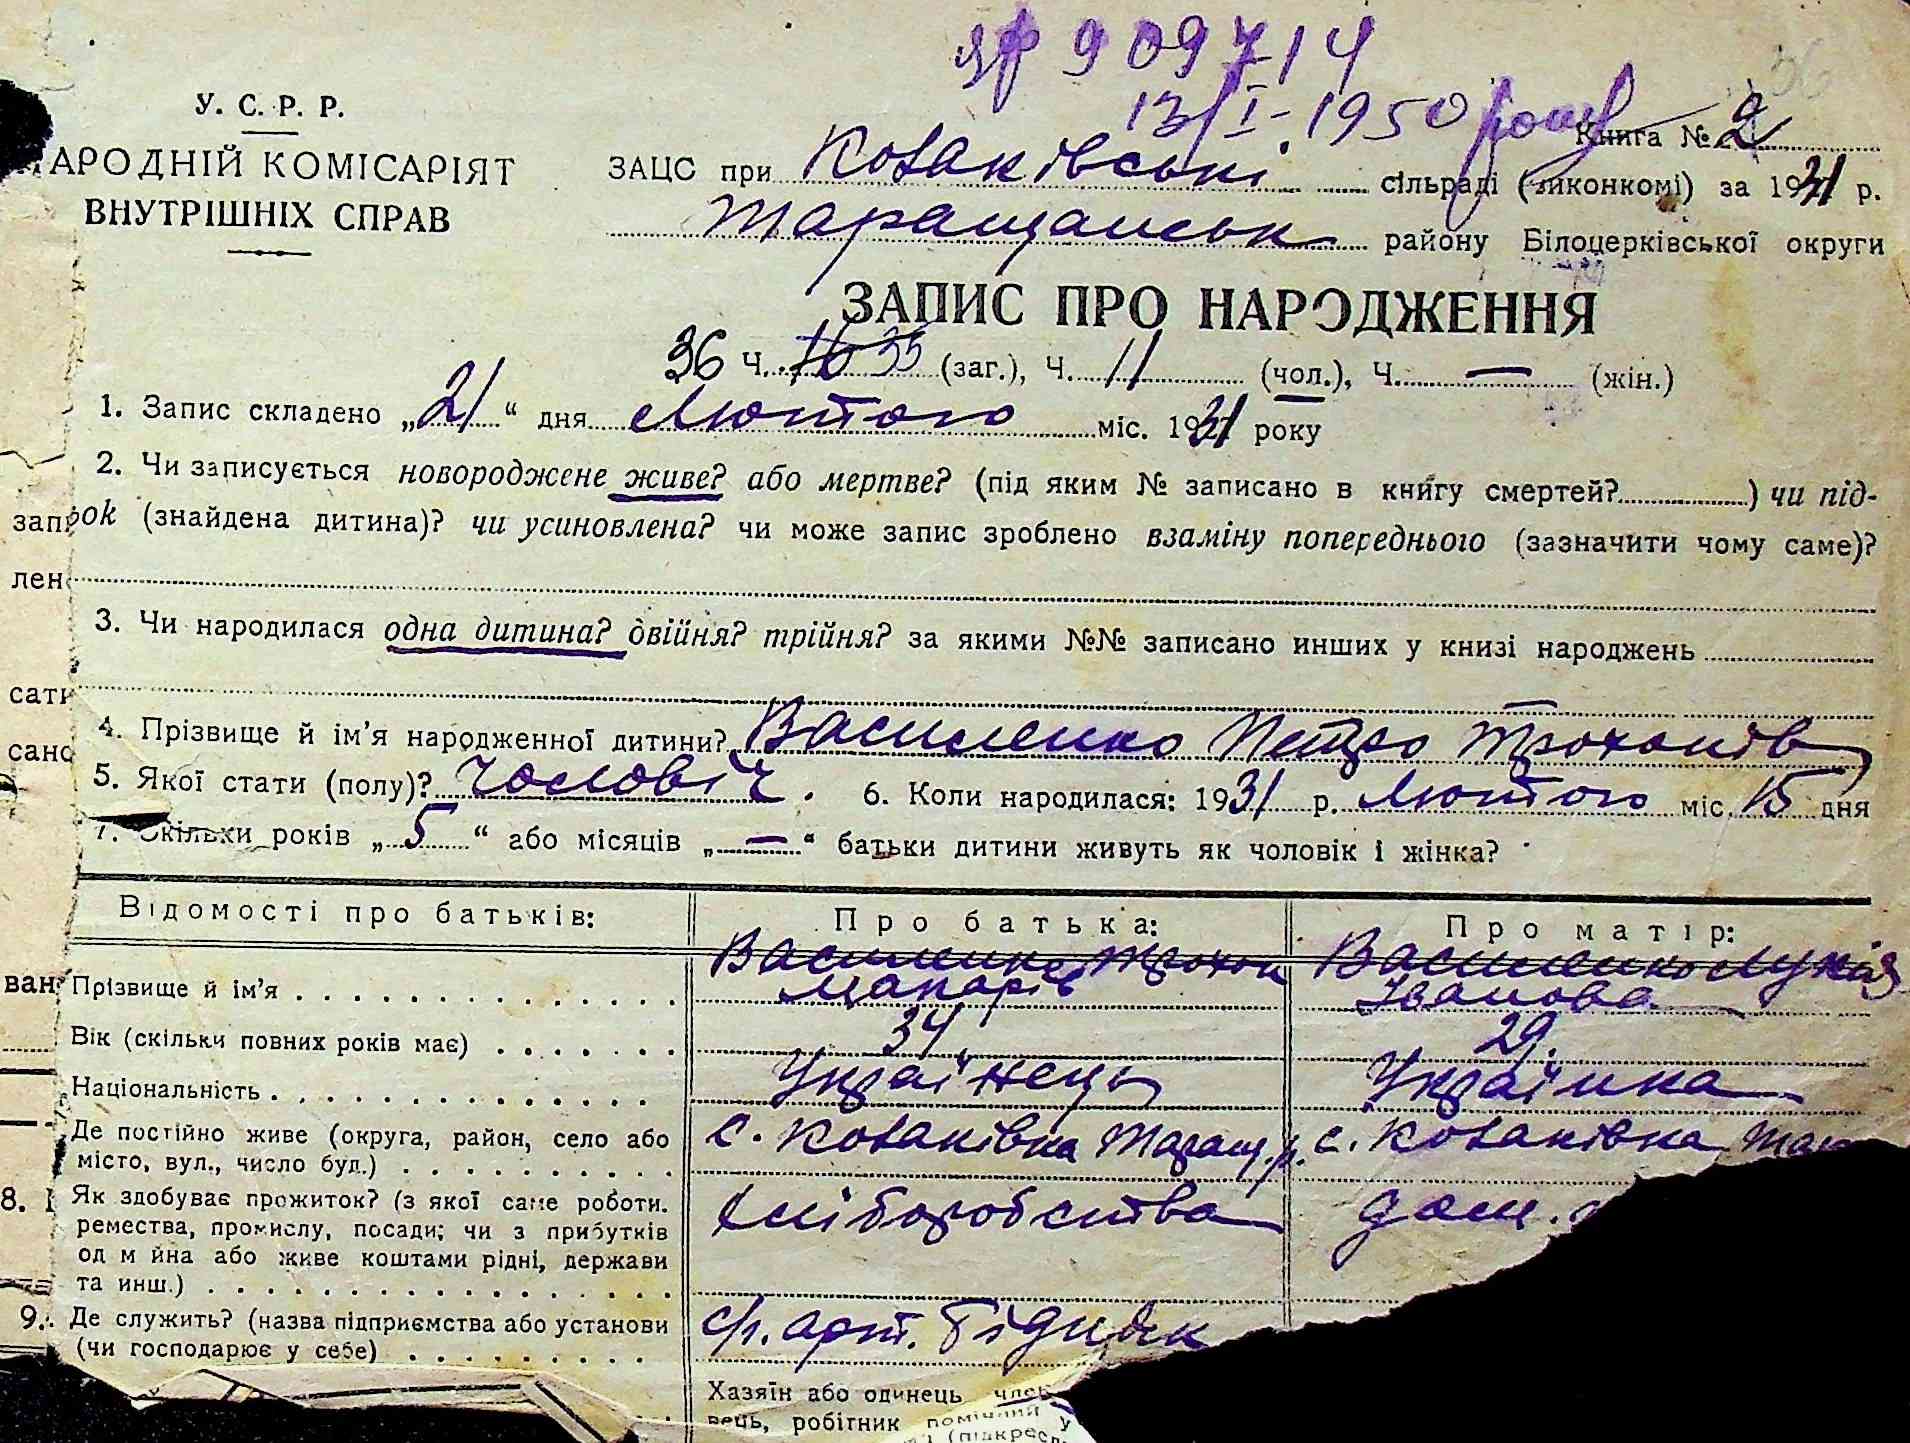 ЯФ 909714
13/I-1950 року
36
У. С. Р. Р.
НАРОДНІЙ КОМІСАРІЯТ
ВНУТРІШНІХ СПРАВ
Книга № 2
ЗАЦС при Козаківські сільраді (виконкомі) за 1931 р.
Таращанськ району Білоцерківської округи
ЗАПИС ПРО НАРОДЖЕННЯ
36 Ч. 35 (заг.), Ч. 11 (чол.), Ч. — (жін.)
1. Запис складено „21“ дня Лютого міс. 1931 року
2. Чи записується новороджене живе? або мертве? (під яким № записано в книгу смертей?) чи підрок (знайдена дитина)? чи усиновлена? чи може запис зроблено взаміну попереднього (зазначити чому саме)?
3. Чи народилася одна дитина? двійня? трійня? за якими №№ записано инших у книзі народжень
4. Прізвище й ім’я народженної дитини? Василенко Петро Трохонів
5. Якої стати (полу)? Чоловіч. 6. Коли народилася: 1931 р. Лютого міс. 15 дня
7. Скільки років „5“ або місяців „—“ батьки дитини живуть як чоловік і жінка?
Відомості про батьків: Про батька: Про матір:
Прізвище й ім’я Василенко Трохон Макарів Василенко Іванова
Вік (скільки повних років має) 34 29
Національність Українець Українка
Де постійно живе (округа, район, село або
місто, вул., число буд.) с. Козаківка Таращ. р. с. Козаківка
8. Як здобуває прожиток? (з якої саме роботи.
ремества, промислу, посади; чи з прибутків
од м йна або живе коштами рідні, держави
та инш.) Хліборобства дом.
9. Де служить? (назва підприємства або установи
(чи господарює у себе) с/г. арт. Бідняк
Хазяїн або одинець член
вець, робітник помічний у
(підкресл
зап
лен
сати
сано
ван